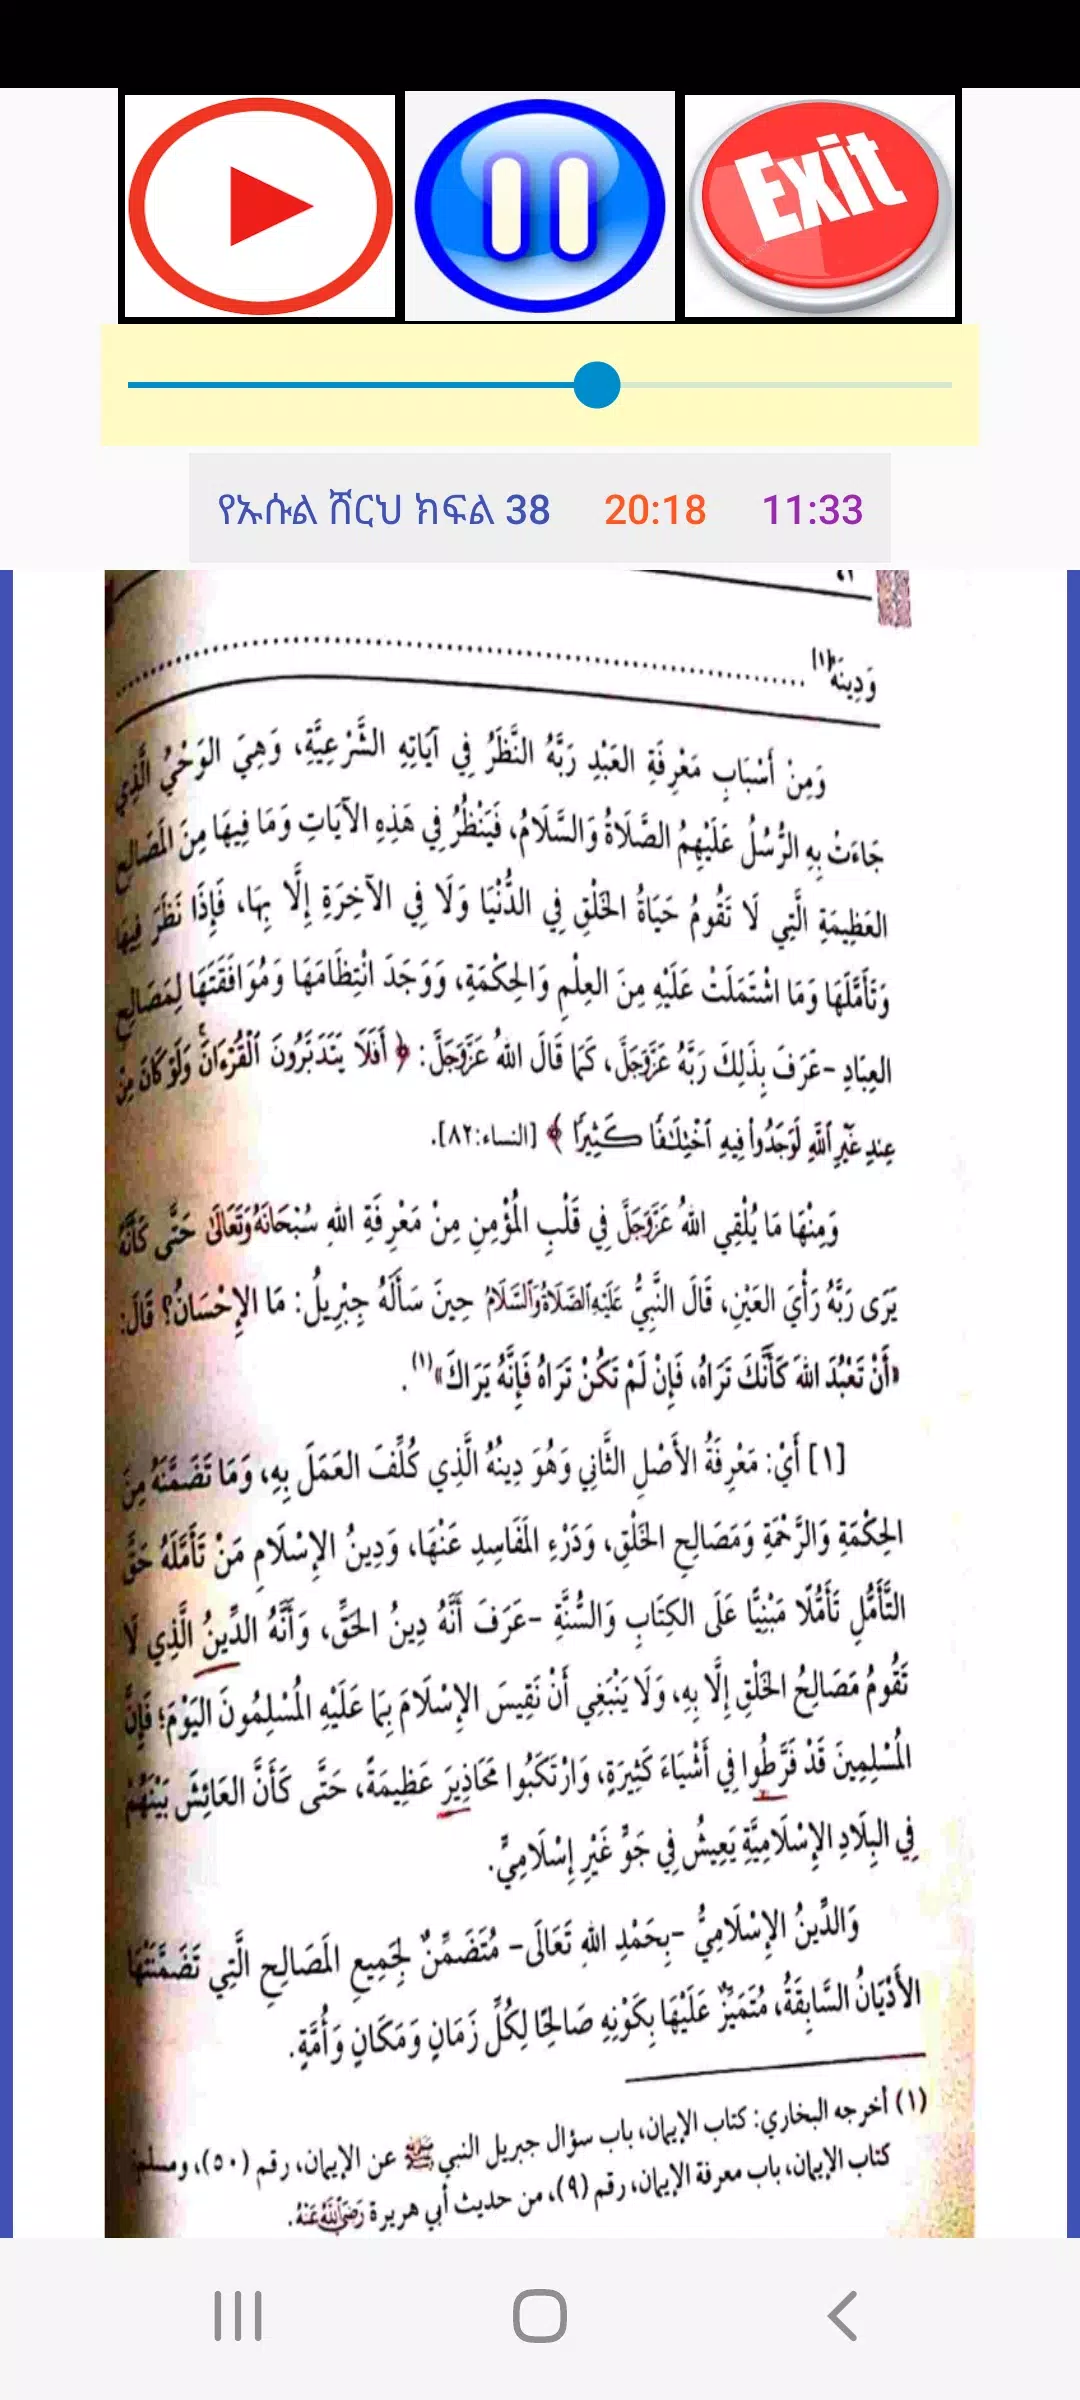 Exit
የኡሱል ሸርህ ክፍል 38 20:18 11:33
وَدِينَهُ[١] ........................................
وَمِنْ أَسْبَابِ مَعْرِفَةِ العَبْدِ رَبَّهُ النَّظَرُ فِي آيَاتِهِ الشَّرْعِيَّةِ، وَهِيَ الوَحْيُ الَّذِي
جَاءَتْ بِهِ الرُّسُلُ عَلَيْهِمُ الصَّلَاةُ وَالسَّلَامُ، فَيَنْظُرُ فِي هَذِهِ الآيَاتِ وَمَا فِيهَا مِنَ المَصَالِحِ
العَظِيمَةِ الَّتِي لَا تَقُومُ حَيَاةُ الخَلْقِ فِي الدُّنْيَا وَلَا فِي الآخِرَةِ إِلَّا بِهَا، فَإِذَا نَظَرَ فِيهَا
وَتَأَمَّلَهَا وَمَا اشْتَمَلَتْ عَلَيْهِ مِنَ العِلْمِ وَالحِكْمَةِ، وَوَجَدَ انْتِظَامَهَا وَمُوَافَقَتَهَا لِمَصَالِحِ
العِبَادِ -عَرَفَ بِذَلِكَ رَبَّهُ عَزَّوَجَلَّ، كَمَا قَالَ اللهُ عَزَّوَجَلَّ: ﴿أَفَلَا يَتَدَبَّرُونَ ٱلْقُرْءَانَۚ وَلَوْ كَانَ مِنْ
عِندِ غَيْرِ ٱللَّهِ لَوَجَدُوا۟ فِيهِ ٱخْتِلَـٰفًا كَثِيرًا﴾ [النساء:٨٢].
وَمِنْهَا مَا يُلْقِي اللهُ عَزَّوَجَلَّ فِي قَلْبِ المُؤْمِنِ مِنْ مَعْرِفَةِ اللهِ سُبْحَانَهُ وَتَعَالَى حَتَّى كَأَنَّهُ
يَرَى رَبَّهُ رَأْيَ العَيْنِ، قَالَ النَّبِيُّ عَلَيْهِ ٱلصَّلَاةُ وَٱلسَّلَامُ حِينَ سَأَلَهُ جِبْرِيلُ: مَا الإِحْسَانُ؟ قَالَ:
«أَنْ تَعْبُدَ اللهَ كَأَنَّكَ تَرَاهُ، فَإِنْ لَمْ تَكُنْ تَرَاهُ فَإِنَّهُ يَرَاكَ»(١).
[١] أَيْ: مَعْرِفَةُ الأَصْلِ الثَّانِي وَهُوَ دِينُهُ الَّذِي كُلِّفَ العَمَلَ بِهِ، وَمَا تَضَمَّنَهُ مِنَ
الحِكْمَةِ وَالرَّحْمَةِ وَمَصَالِحِ الخَلْقِ، وَدَرْءِ المَفَاسِدِ عَنْهَا، وَدِينُ الإِسْلَامِ مَنْ تَأَمَّلَهُ حَقَّ
التَّأَمُّلِ تَأَمُّلًا مَبْنِيًّا عَلَى الكِتَابِ وَالسُّنَّةِ -عَرَفَ أَنَّهُ دِينُ الحَقِّ، وَأَنَّهُ الدِّينُ الَّذِي لَا
تَقُومُ مَصَالِحُ الخَلْقِ إِلَّا بِهِ، وَلَا يَنْبَغِي أَنْ نَقِيسَ الإِسْلَامَ بِمَا عَلَيْهِ المُسْلِمُونَ اليَوْمَ؛ فَإِنَّ
المُسْلِمِينَ قَدْ فَرَّطُوا فِي أَشْيَاءَ كَثِيرَةٍ، وَارْتَكَبُوا مَحَاذِيرَ عَظِيمَةً، حَتَّى كَأَنَّ العَائِشَ بَيْنَهُمْ
فِي البِلَادِ الإِسْلَامِيَّةِ يَعِيشُ فِي جَوٍّ غَيْرِ إِسْلَامِيٍّ.
وَالدِّينُ الإِسْلَامِيُّ -بِحَمْدِ اللهِ تَعَالَى- مُتَضَمِّنٌ لِجَمِيعِ المَصَالِحِ الَّتِي تَضَمَّنَتْهَا
الأَدْيَانُ السَّابِقَةُ، مُتَمَيِّزٌ عَلَيْهَا بِكَوْنِهِ صَالِحًا لِكُلِّ زَمَانٍ وَمَكَانٍ وَأُمَّةٍ.
(١) أخرجه البخاري: كتاب الإيمان، باب سؤال جبريل النبي ﷺ عن الإيمان، رقم (٥٠)، ومسلم:
كتاب الإيمان، باب معرفة الإيمان، رقم (٩)، من حديث أبي هريرة رَضِيَ اللَّهُ عَنْهُ.